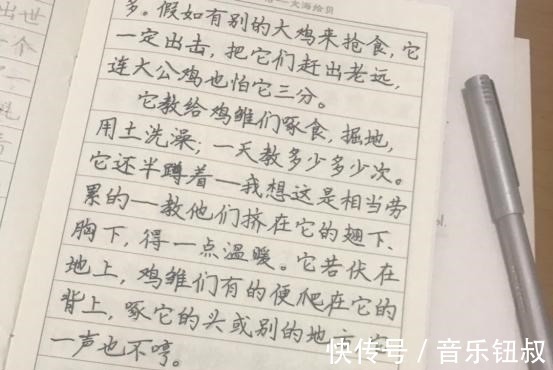 大海绘贝
多。假如有别的大鸡来抢食，它
一定出击，把它们赶出老远，
连大公鸡也怕它三分。
它教给鸡雏们啄食，掘地，
用土洗澡；一天教多少多少次。
它还半蹲着一我想这是相当劳
累的一教他们挤在它的翅下、
胸下，得一点温暖。它若伏在
地上，鸡雏们有的便爬在它的
背上，啄它的头或别的地
一声也不哼。
出世
个
快传号／音乐钮叔